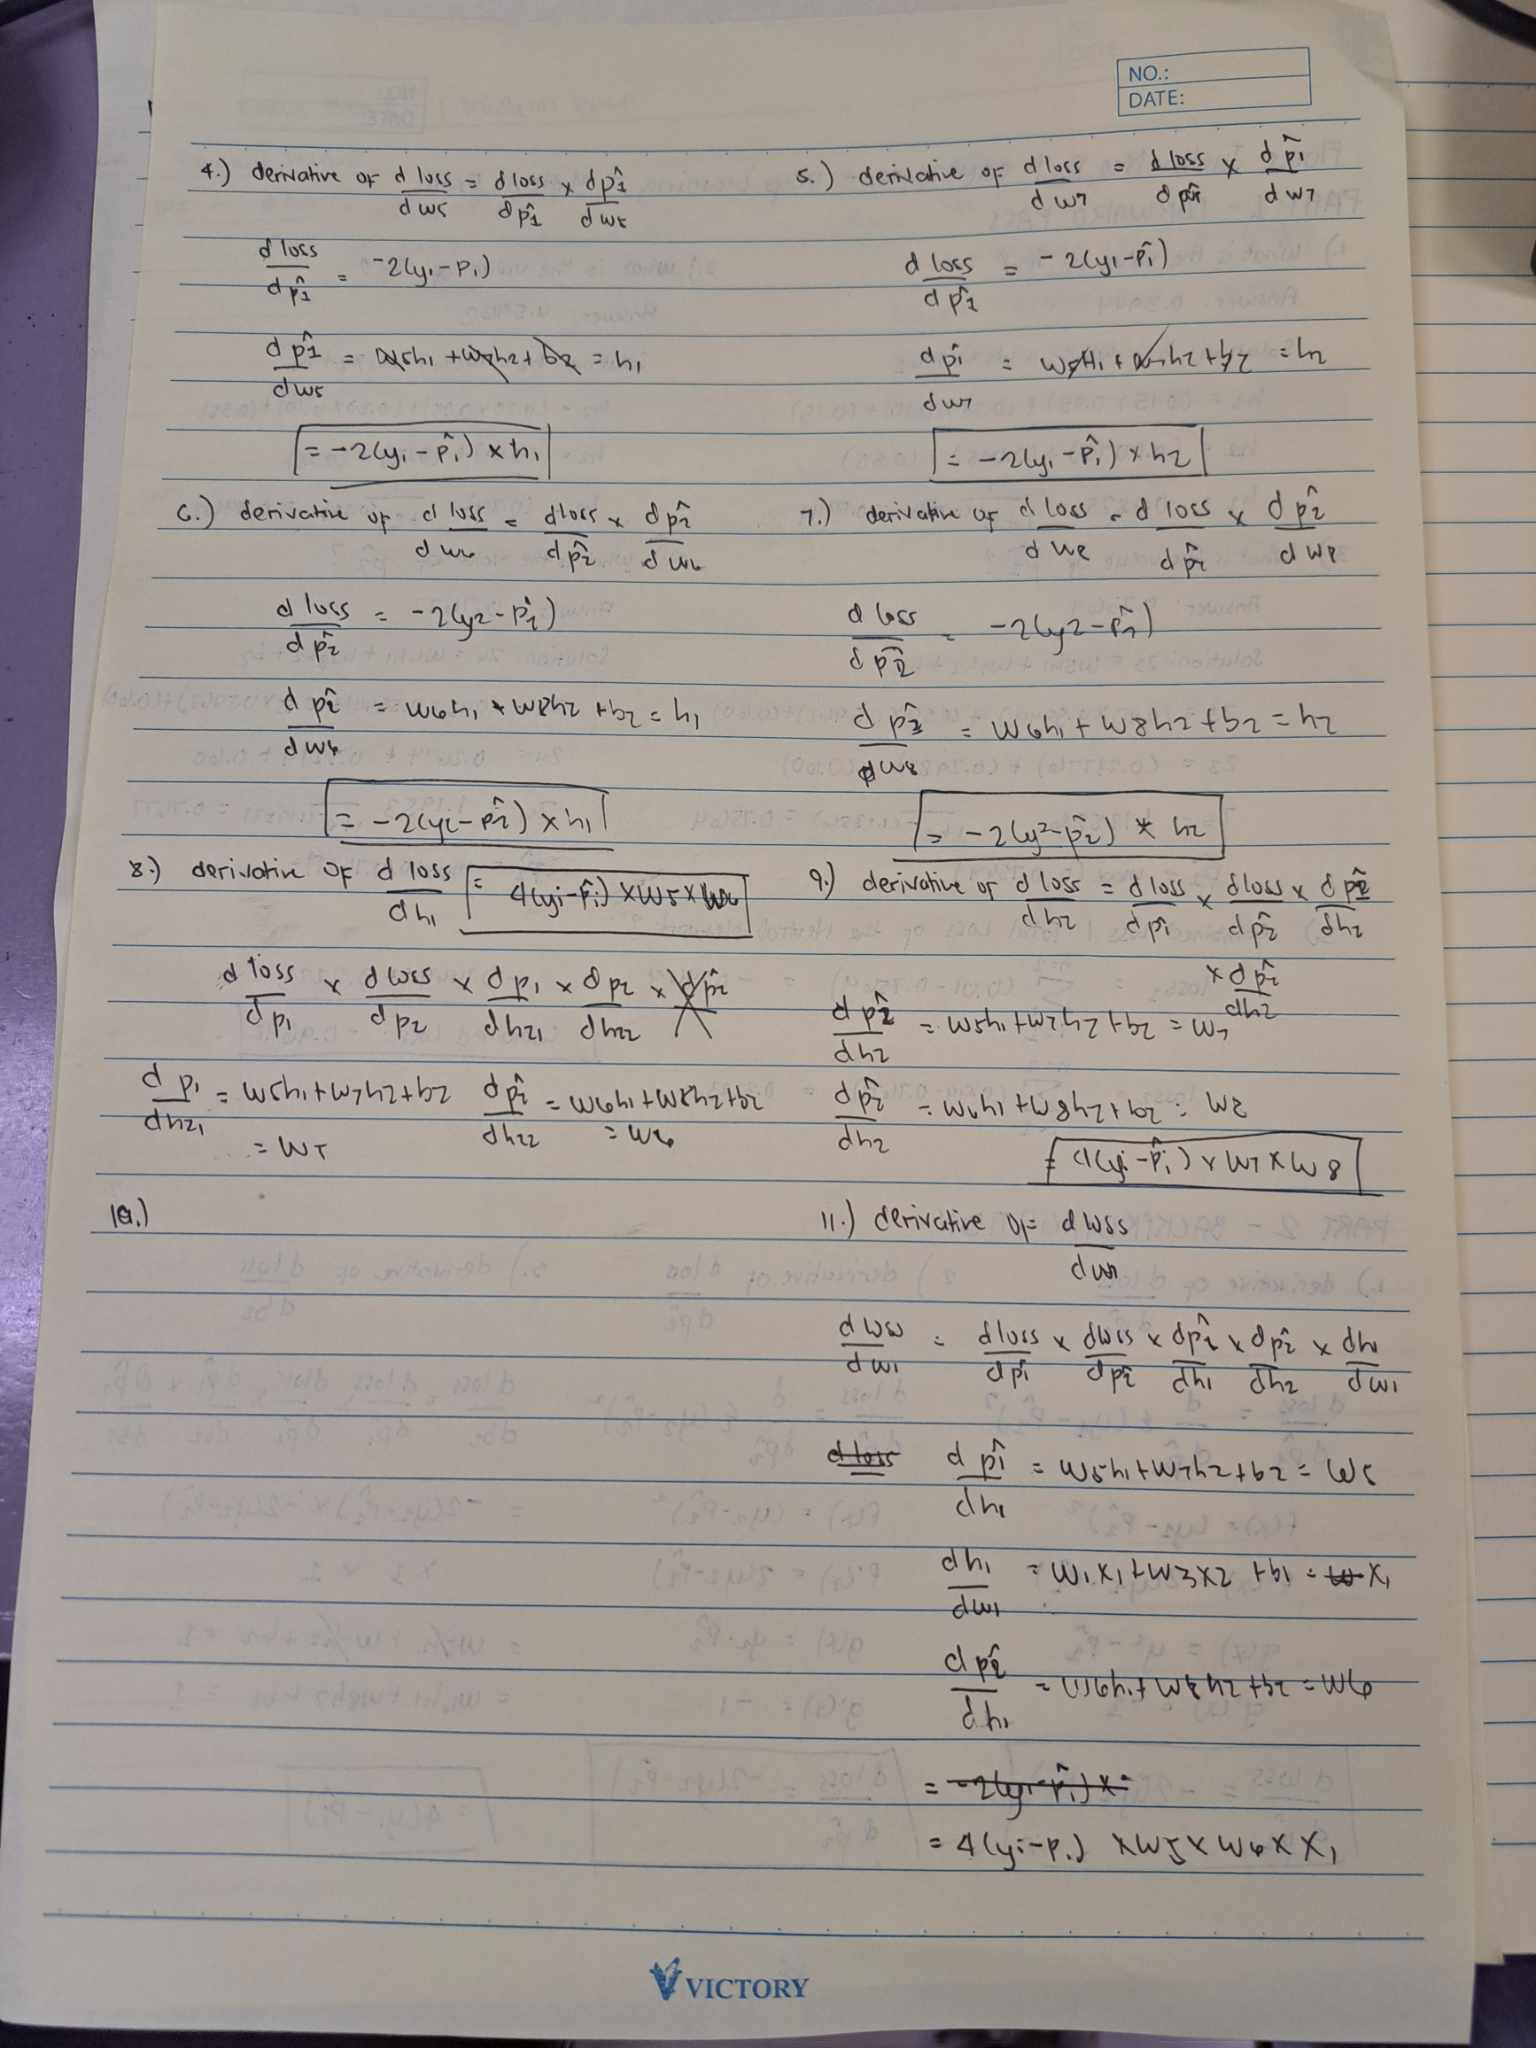 NO.:
DATE:
4.) derivative of d loss / dw5 = d loss / dp̂1 × dp̂1 / dw5
d loss / dp̂1 = -2(y1-p1)
dp̂1 / dw5 = w5h1 + w7h2 + b2 = h1
= -2(y1-p̂1) × h1
5.) derivative of d loss / dw7 = d loss / dp̂1 × dp̂1 / dw7
d loss / dp̂1 = -2(y1-p̂1)
dp̂1 / dw7 = w5H1 + w7h2 + b2 = h2
= -2(y1-p̂1) × h2
6.) derivative of d loss / dw6 = d loss / dp̂2 × dp̂2 / dw6
d loss / dp̂2 = -2(y2-p̂2)
dp̂2 / dw6 = w6h1 + w8h2 + b2 = h1
= -2(yi-p̂2) × h1
7.) derivative of d loss / dw8 = d loss / dp̂2 × dp̂2 / dw8
d loss / dp̂2 = -2(y2-p̂2)
dp̂2 / dw8 = w6h1 + w8h2 + b2 = h2
= -2(y2-p̂2) * h2
8.) derivative of d loss / dh1 = 4(yi-p̂i) × w5 × w6
d loss / dp1 × d loss / dp2 × dp1 / dh21 × dp2 / dh22 ×
dp1 / dh21 = w5h1 + w7h2 + b2
= w5
dp̂2 / dh22 = w6h1 + w8h2 + b2
= w6
9.) derivative of d loss / dh2 = d loss / dp̂1 × d loss / dp̂2 × dp̂2 / dh2
× dp̂2 / dh2
dp̂2 / dh2 = w5h1 + w7h2 + b2 = w7
dp̂2 / dh2 = w6h1 + w8h2 + b2 = w8
= 4(yi-p̂i) × w7 × w8
10.)
11.) derivative of d loss / dw1
d loss / dw1 = d loss / dp̂1 × d loss / dp̂2 × dp̂2 / dh1 × dp̂2 / dh2 × dh1 / dw1
d loss
dp̂1 / dh1 = w5h1 + w7h2 + b2 = w5
dh1 / dw1 = w1x1 + w3x2 + b1 = x1
dp̂2 / dh1 = w6h1 + w8h2 + b2 = w6
= -2(y1-p̂1) ×
= 4(yi-pi) × w5 × w6 × x1
VICTORY